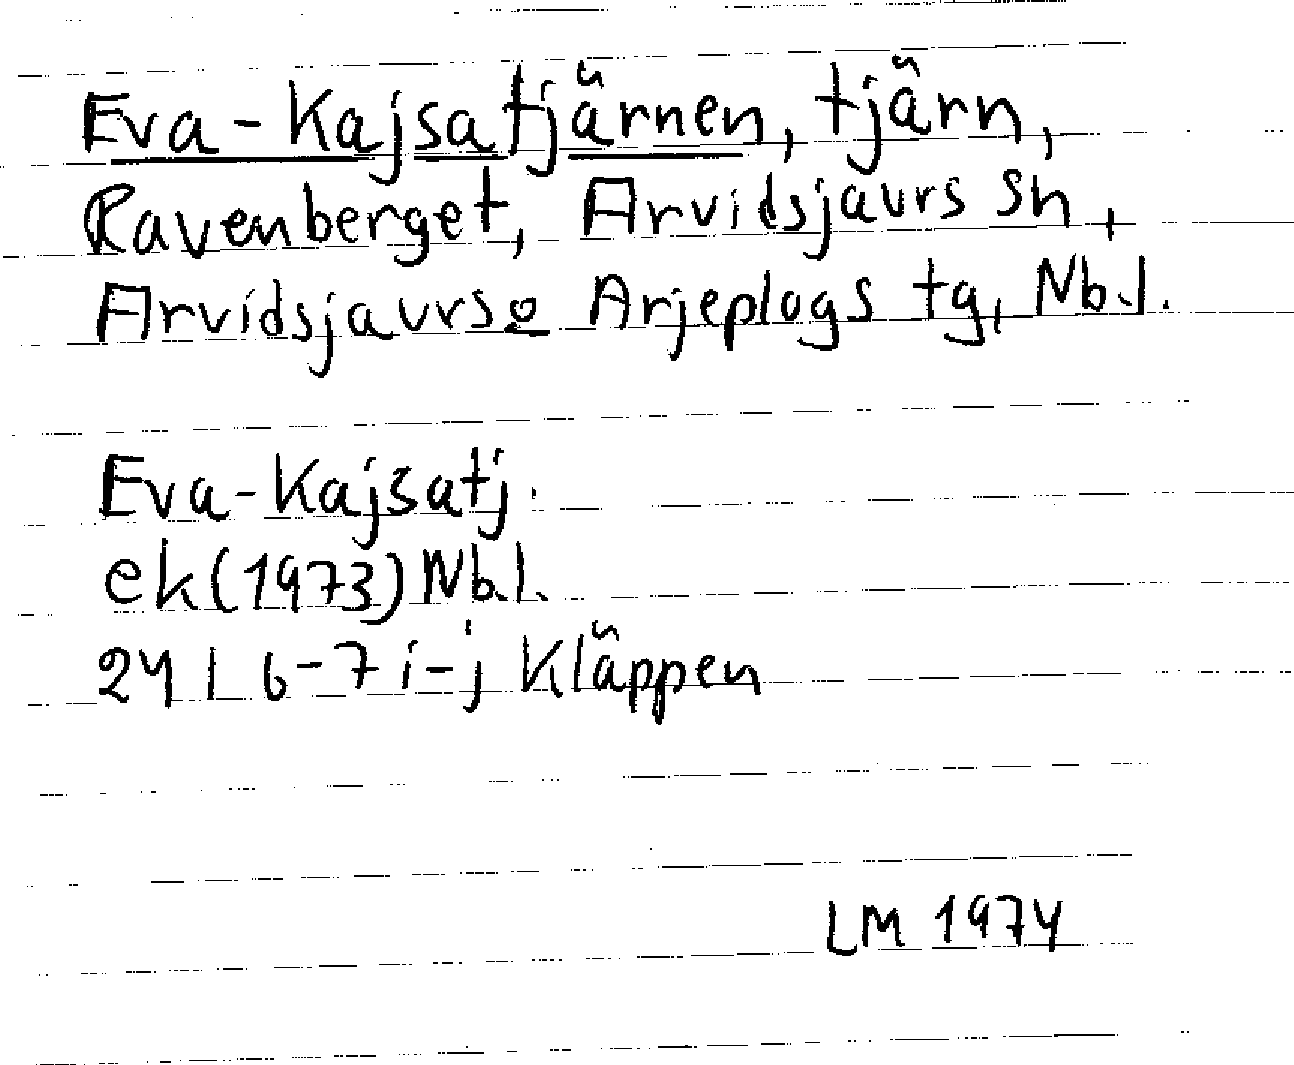 Eva-Kajsatjärnen, tjärn,
Ravenberget, Arvidsjaurs sn,
Arvidsjaurs o Arjeplogs tg, Nb.l.
Eva-Kajsatj.
ek (1973) Nb.l.
24 I 6-7 i-j Kläppen
LM 1974